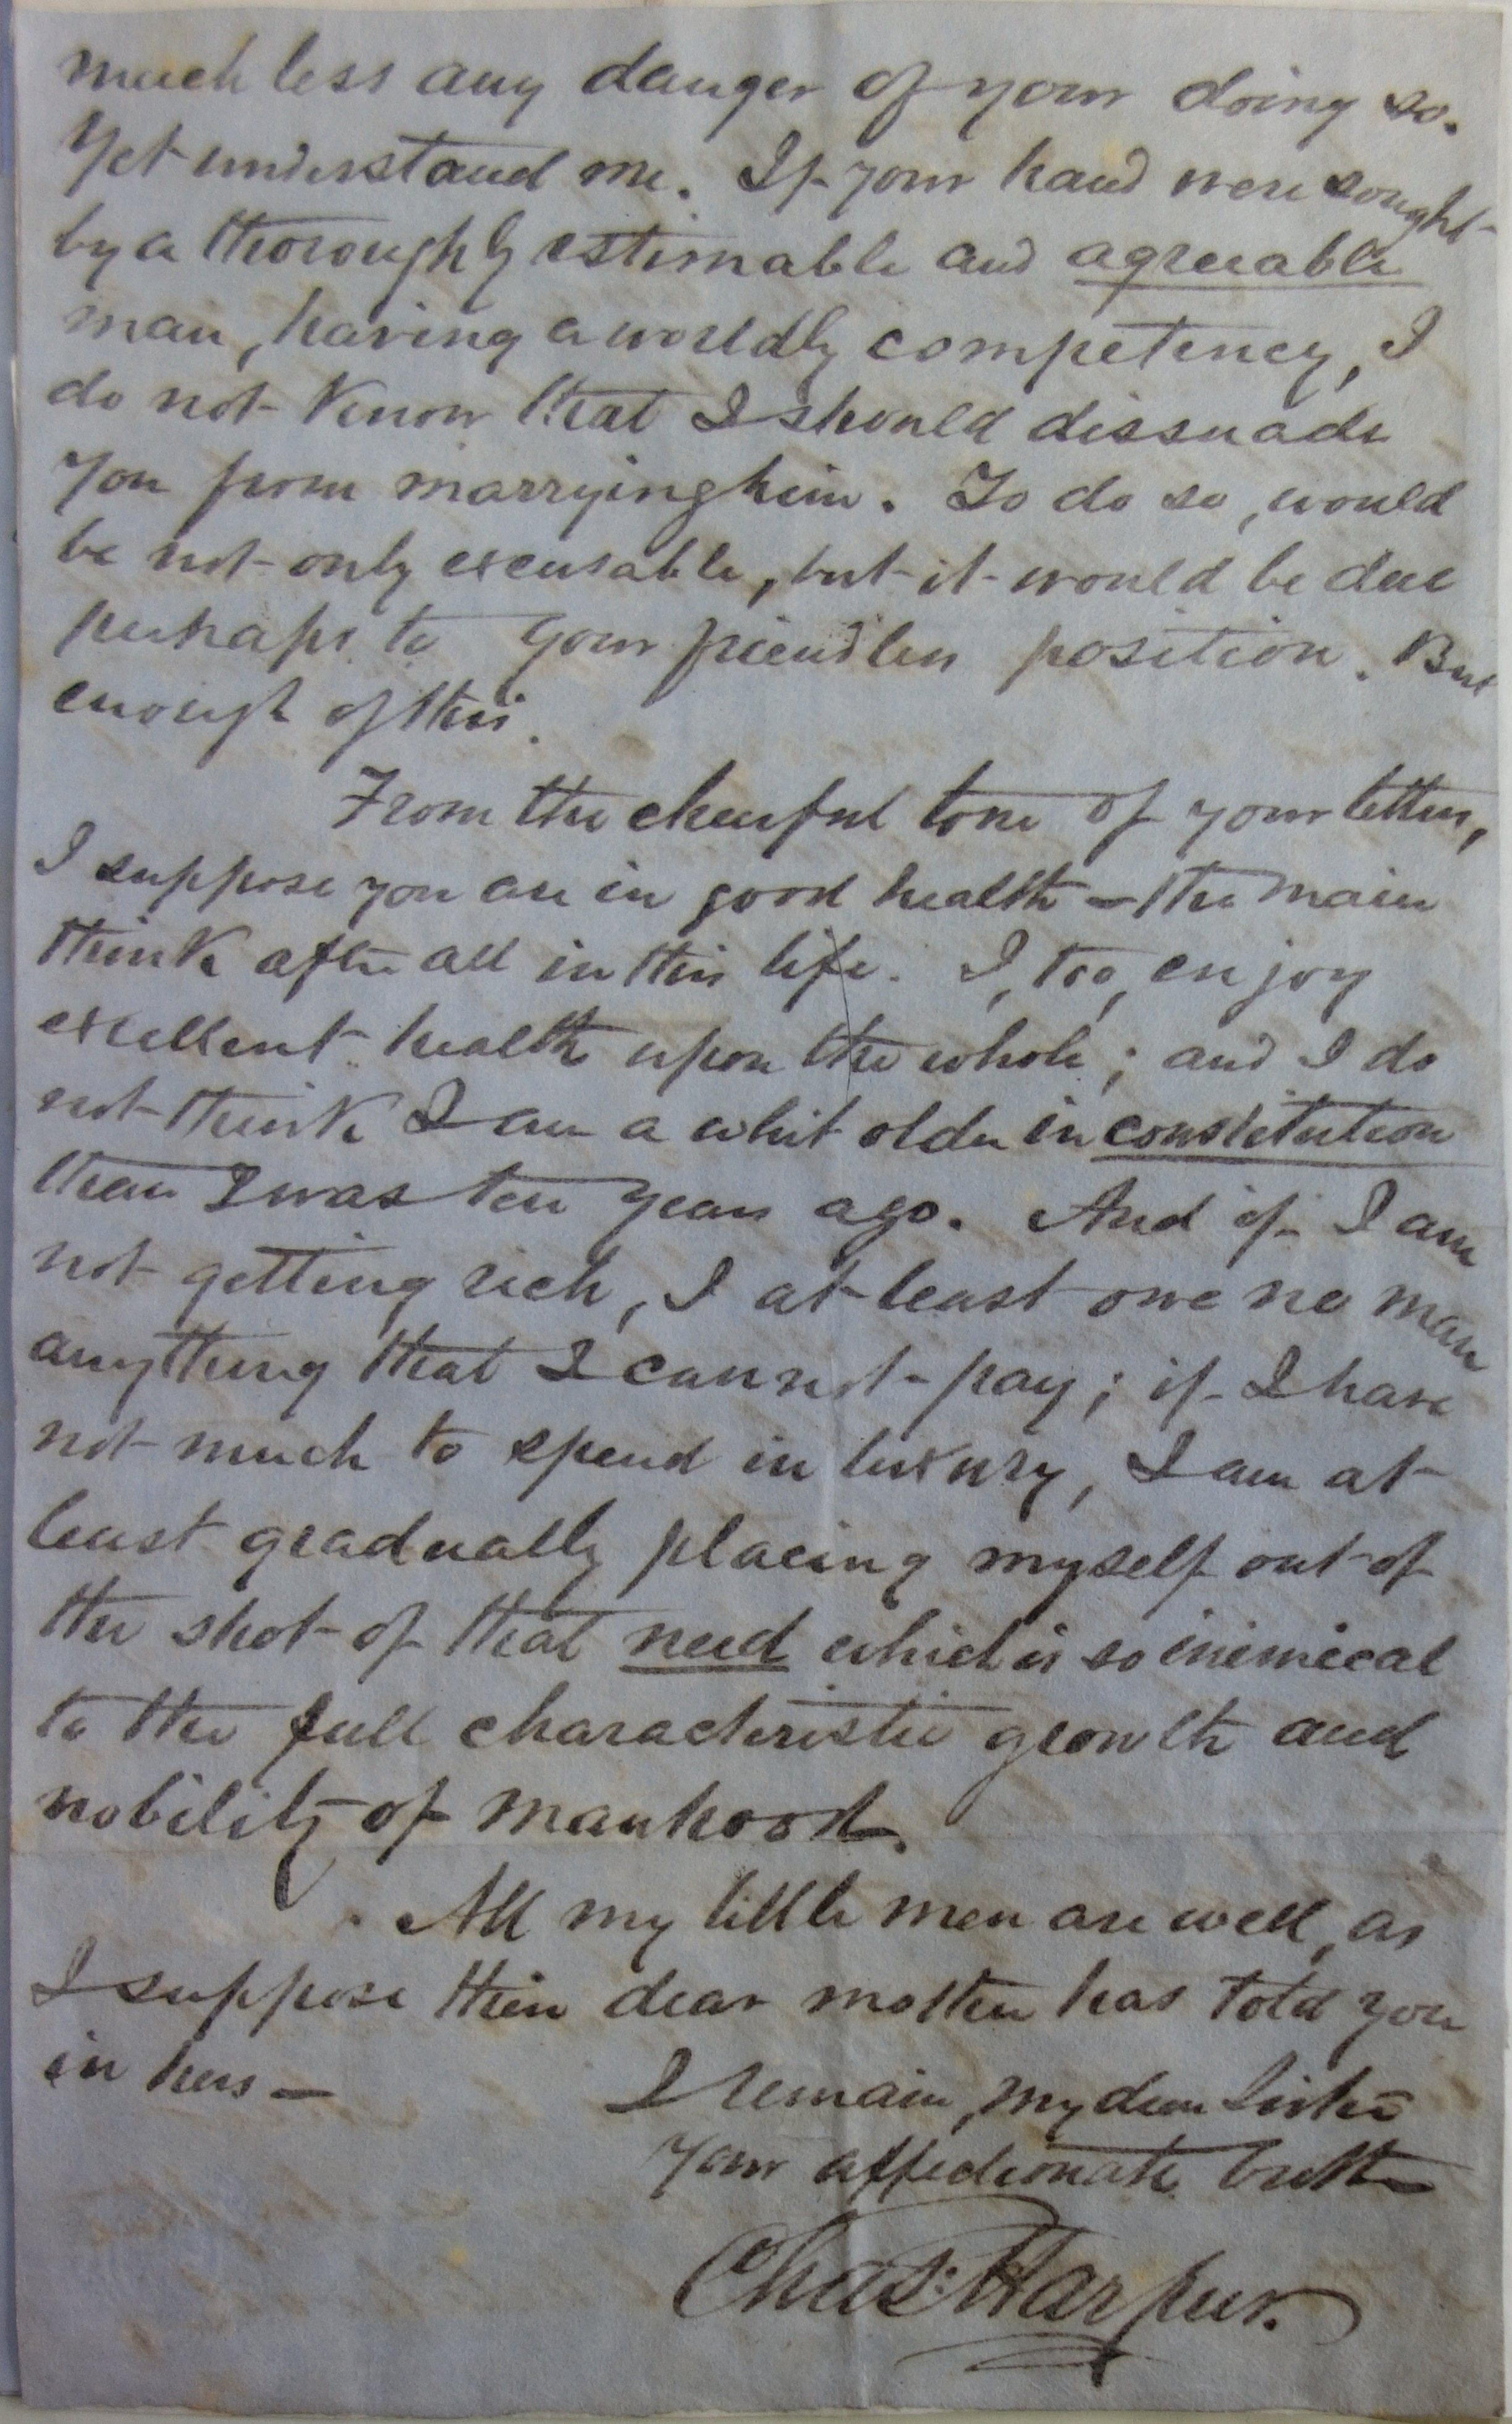 much less any danger of your doing so.
Yet understand me. If your hand were sought
by a thoroughly estimable and agreeable
man, having a worldly competency, I
do not know that I should dissuade
you from marrying him. To do so, would
be not only excusable, but it would be due
perhaps to your friendless position. But
enough of this.
From the cheerful tone of your letters,
I suppose you are in good health – the main
think after all in this life. I, too, enjoy
excellent health upon the whole; and I do
not think I am a whit older in constitution
than I was ten years ago. And if I am
not getting rich, I at least owe no man
anything that I cannot pay; if I have
not much to spend in luxury, I am at
least gradually placing myself out of
the shot of that need which is so inimical
to the full characteristic growth and
nobility of manhood.
All my little men are well, as
I suppose their dear mother has told you
in hers –
I remain, my dear Sister
Your affectionate brother
Chas: Harpur.